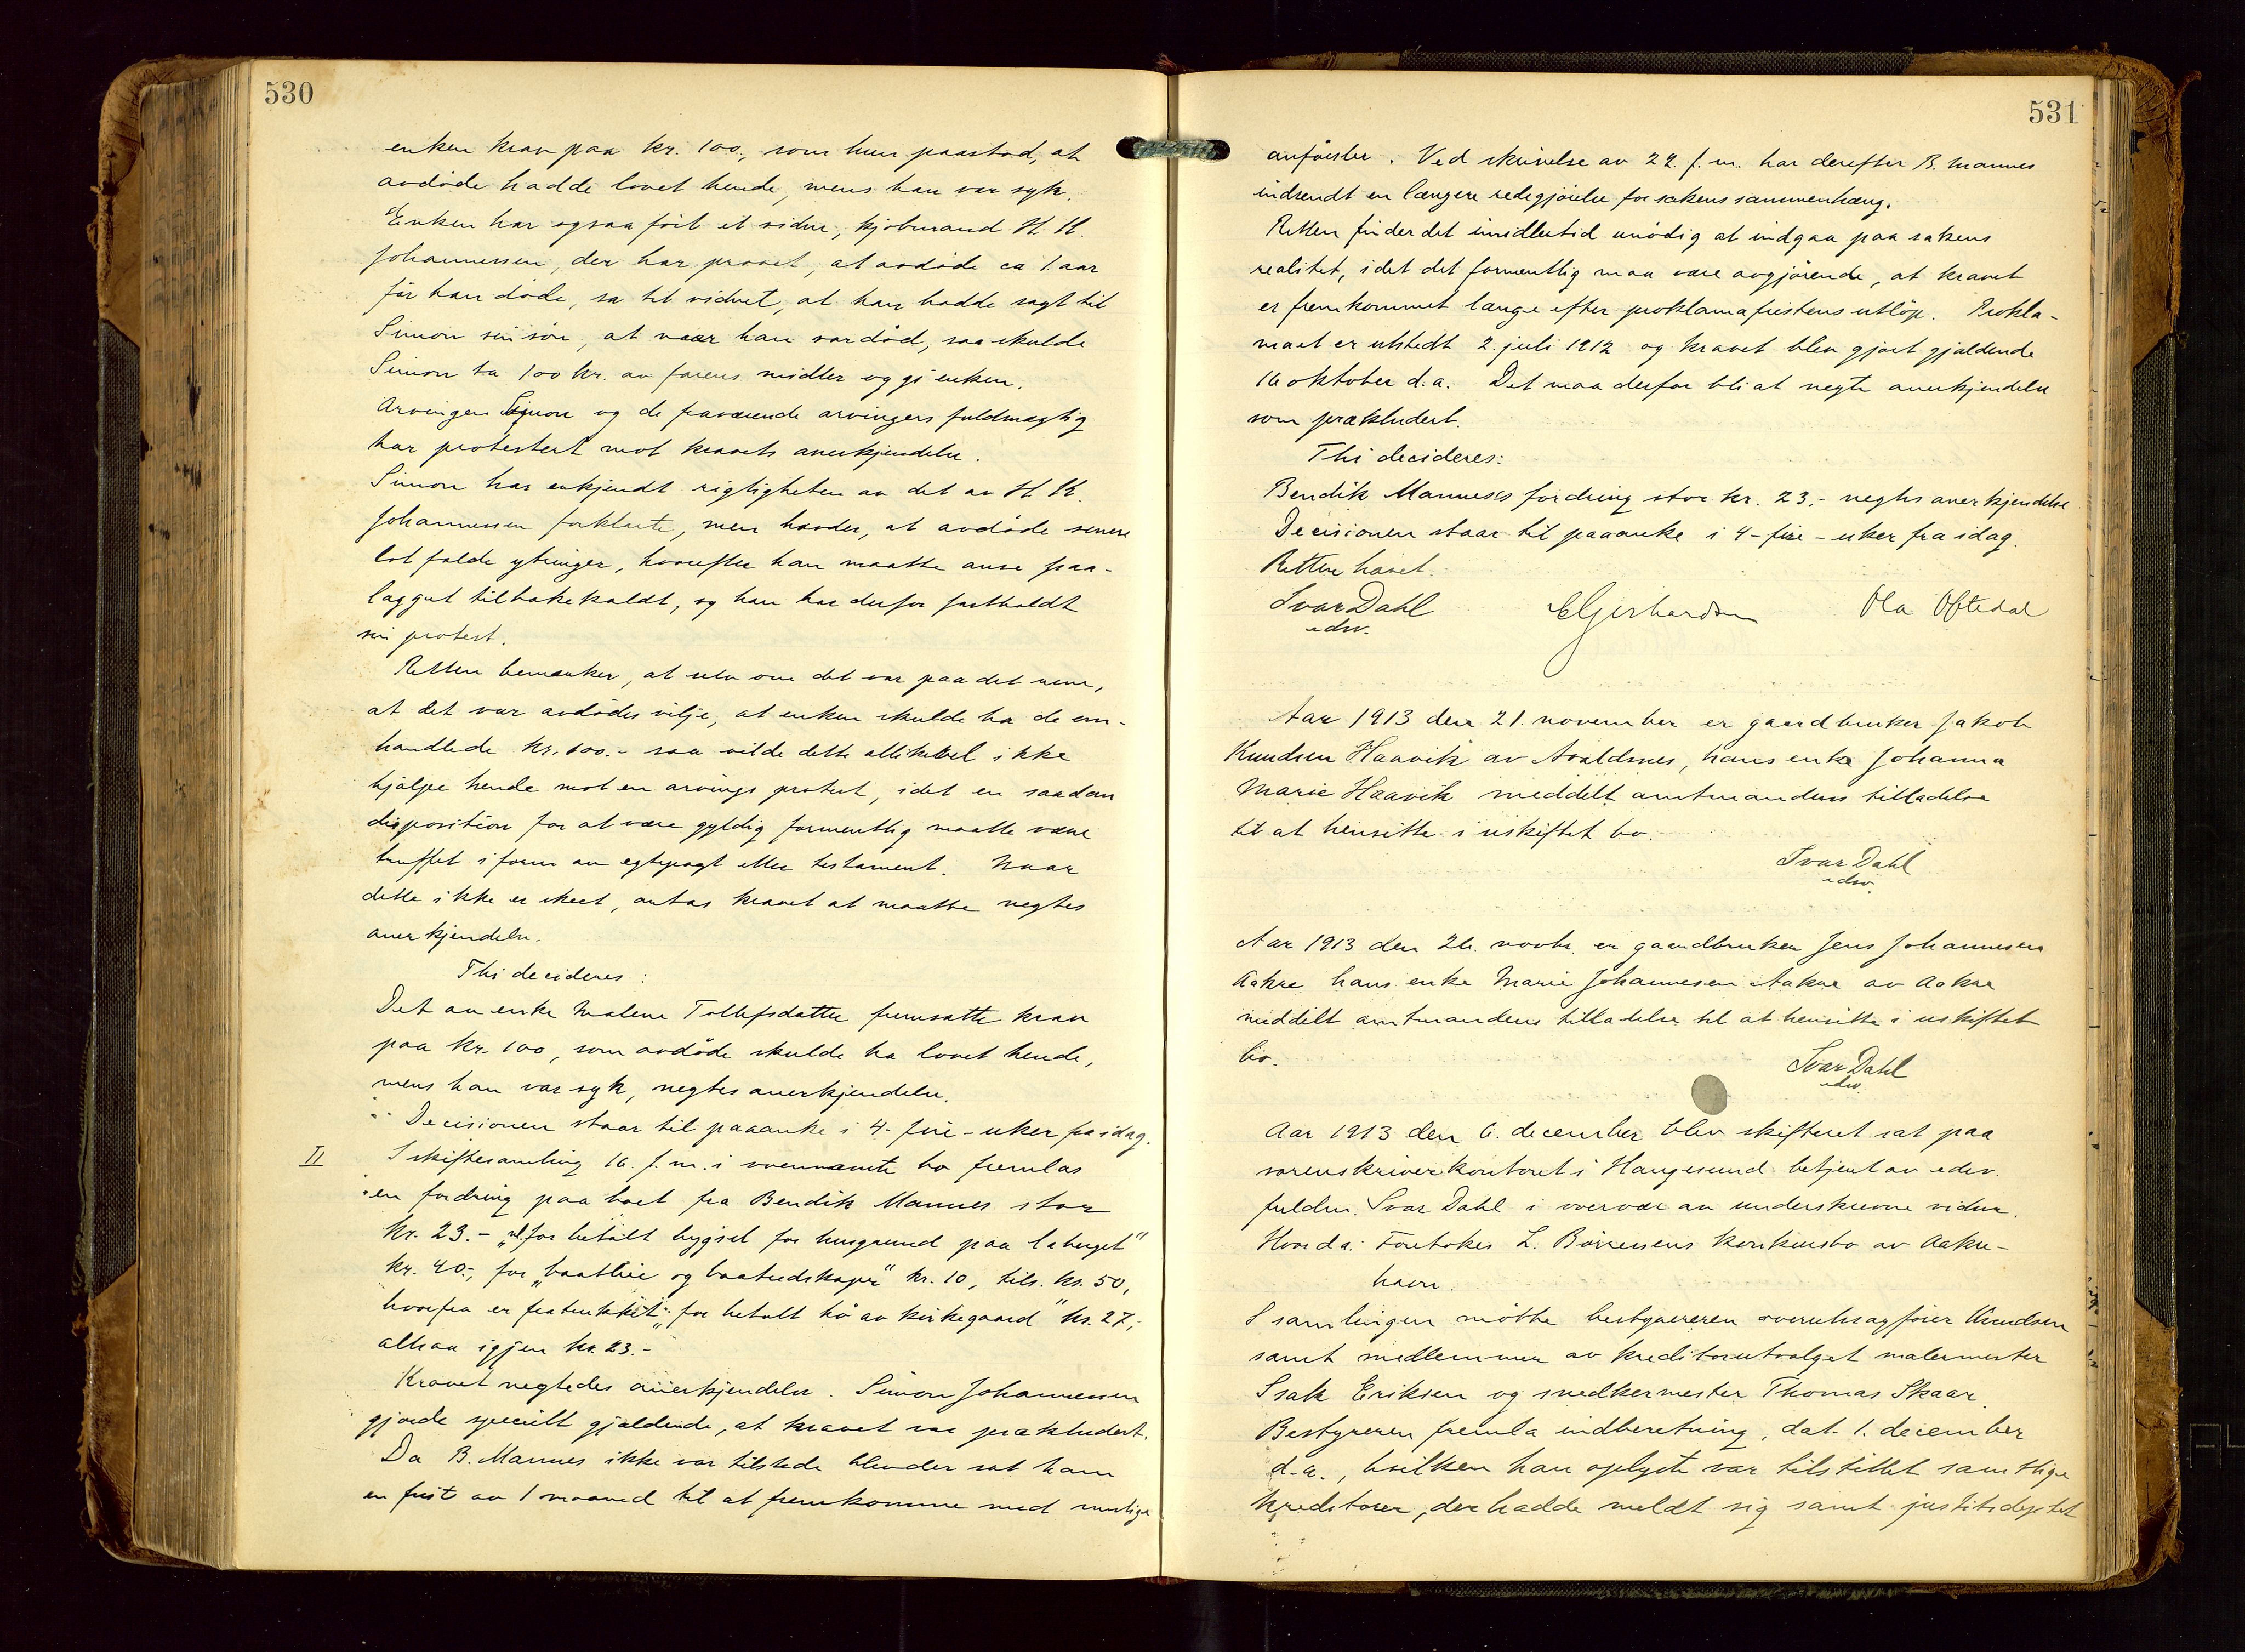 530
enken krav paa kr. 100., som hun paastod, at
avdøde hadde lovet hende, mens han var syk.
Enken har ogsaa ført et vidne, kjøbmand H. H.
Johannessen, der har provet, at avdøde ca 1 aar
før han døde, sa til vidnet, at han hadde sagt til
Simon sin søn, at naar han var død, saa skulde
Simon ta 100 kr. av farens midler og gi enken.
Arvingen Simon og de fraværende arvingers fuldmægtig
har protestert mot kravets anerkjendelse.
Simon har erkjendt rigtigheten av det av H. H.
Johannessen forklarte, men hævder, at avdøde senere
lot falde ytringer, hvorefter han maatte anse paa-
lægget tilbakekaldt, og han har derfor fastholdt
sin protest.
Retten bemærker, at selv om det var paa det rene,
at det var avdødes vilje, at enken skulde ha de om-
handlede kr. 100.- saa vilde dette allikevel ikke
hjælpe hende mot en arvings protest, idet en saadan
disposition for at være gyldig formentlig maatte være
truffet i form av egtepagt eller testament. Naar
dette ikke er skeet, antas kravet at maatte negtes
anerkjendelse.
Thi decideres:
Det av enke Malene Tollefsdatter fremsatte krav
paa kr. 100, som avdøde skulde ha lovet hende,
mens han var syk, negtes anerkjendelse.
Decisionen staar til paaanke i 4-fire-uker fra idag.
II I skiftesamling 16. f.m. i ovennævnte bo fremlas
en fordring paa boet fra Bendik Mannes stor
kr. 23.- "for betalt bygsel for husgrund paa laberget"
kr. 40.-, for "baatleie og baatredskaper" kr. 10, tils. kr. 50,
hvorfra er fratrukket "for betalt hø av kirkegaard" kr. 27,-
altsaa igjen kr. 23.-
Kravet negtedes anerkjendelse. Simon Johannessen
gjorde specielt gjældende, at kravet var prækludert.
Da B. Mannes ikke var tilstede blev der sat ham
en frist av 1 maaned til at fremkomme med mulige
531
anførsler. Ved skrivelse av 22. f.m. har derefter B. Mannes
indsendt en længere redegjørelse for sakens sammenhæng.
Retten finder det imidlertid unødig at indgaa paa sakens
realitet, idet det formentlig maa være avgjørende, at kravet
er fremkommet længe efter proklamafristens utløp. Prokla-
maet er utstedt 2. juli 1912 og kravet blev gjort gjældende
16 oktober d.a. Det maa derfor bli at negte anerkjendelse
som prækludert.
Thi decideres:
Bendik Mannes's fordring stor kr. 23.- negtes anerkjendelse
Decisionen staar til paaanke i 4-fire-uker fra idag.
Retten hævet.
Ivar Dahl
edsv.
Gerhardsen
Ola Oftedal
Aar 1913 den 21. november er gaardbruker Jakob
Knudsen Haavik av Avaldsnes, hans enke Johanna
Marie Haavik meddelt amtmandens tilladelse
til at hensitte i uskiftet bo.
Ivar Dahl
edsv.
Aar 1913 den 26. novbr. er gaardbruker Jens Johannesen
Aakre hans enke Marie Johannesen Aakre av Aakre
meddelt amtmandens tilladelse til at hensitte i uskiftet
bo.
Ivar Dahl
edsv.
Aar 1913 den 6. december blev skifteret sat paa
sorenskriverkontoret i Haugesund betjent av edsv.
fuldm. Ivar Dahl i overvær av underskrevne vidner.
Hvorda: Foretokes L. Børresens konkursbo av Aakre-
havn.
I samlingen møtte bestyreren overretssakfører Knudsen
samt medlemmer av kreditorutvalget malermester
Isak Eriksen og snedkermester Thomas Skaar.
Bestyreren fremla indberetning, dat. 1. december
d.a., hvilken han oplyste var tilstillet samtlige
kreditorer, der hadde meldt sig samt justitsdeptet